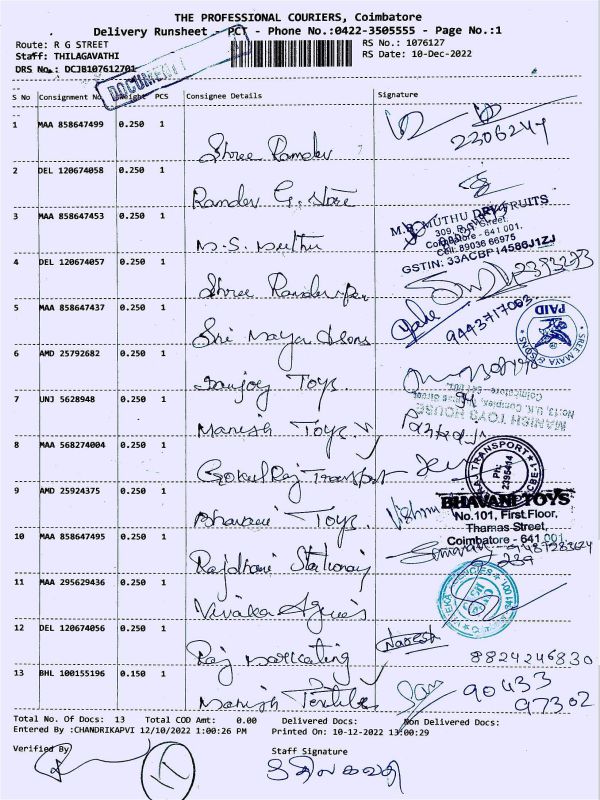 THE PROFESSIONAL COURIERS, Coimbatore
Delivery Runsheet - PCT - Phone No.:0422-3505555 - Page No.:1
Route: R G STREET
RS No.: 1076127
Staff: THILAGAVATHI
RS Date: 10-Dec-2022
DRS No.: DCJB107612701
DOCUMENT
S No Consignment No Weight PCS Consignee Details Signature
1 MAA 858647499 0.250 1
Shree Ramdev
2306244
2 DEL 120674058 0.250 1
Ramdev G. Store
3 MAA 858647453 0.250 1
M.S. Muthu
M.S. MUTHU DRY FRUITS
Coimbatore - 641 001.
Cell: 89036 66975
GSTIN: 33ACBP14586J1ZJ
4 DEL 120674057 0.250 1
Shree
5 MAA 858647437 0.250 1
Sri Maya & Sons
9443717063
PAID
SREE MAYA & SONS
6 AMD 25792682 0.250 1
Sanjog Toys.
7 UNJ 5628948 0.250 1
Manish Toys.
MANISH TOYS HOUSE
8 MAA 568274004 0.250 1
Gokul Raj Transport
TRANSPORT
9 AMD 25924375 0.250 1
Bhavani Toys.
BHAVANI TOYS
No.101, First Floor,
Thamas Street,
Coimbatore - 641 001.
10 MAA 858647495 0.250 1
Rajdhani Stationary
11 MAA 295629436 0.250 1
Viveka Agencies
12 DEL 120674056 0.250 1
Raj Marketing
Naresh
8824246830
13 BHL 100155196 0.150 1
Manish Textiles
90433
97302
Total No. Of Docs: 13 Total COD Amt: 0.00 Delivered Docs: Non Delivered Docs:
Entered By :CHANDRIKAPVI 12/10/2022 1:00:26 PM Printed On: 10-12-2022 13:00:29
Verified By
Staff Signature